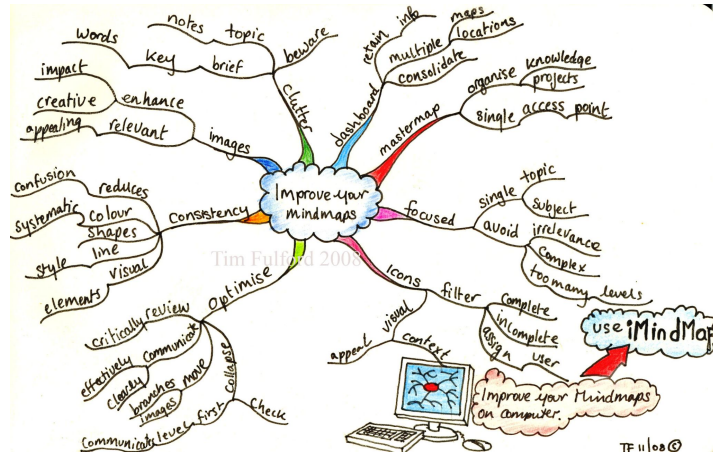 Improve your
mindmaps
clutter
beware
topic
notes
brief
key
words
dashboard
retain info
multiple
maps
locations
consolidate
mastermap
organise
knowledge
projects
single access point
focused
single
topic
subject
avoid
irrelevance
complex
too many levels
Icons
filter
complete
incomplete
assign user
visual
appeal
context
Optimise
review
critically
communicate
effectively
clearly
move
branches
images
collapse
check
first
level
communicate
consistency
reduces
confusion
colour
systematic
shapes
line
style
visual
elements
images
enhance
impact
creative
relevant
appealing
Tim Fulford 2008
Improve your Mindmaps
on computer.
use iMindMap
TF 11/08 ©